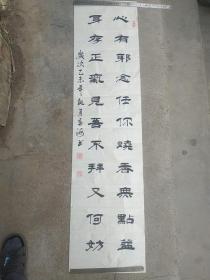 心有邪念任你燒香無點益
身存正氣見吾不拜又何妨
歲次乙未年